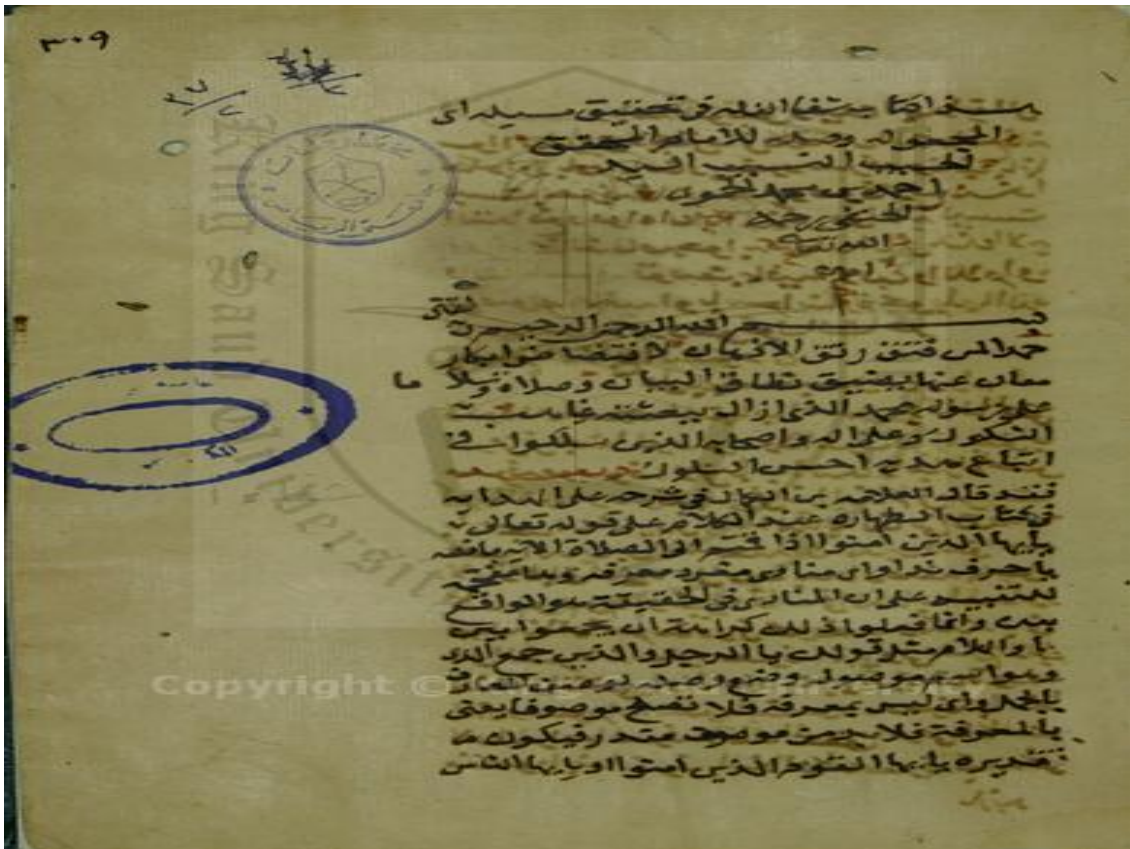 ٣٠٩
٣٧/٧
في تحقيق مسئلة اى
المجعولة وصلة للامام المحقق
الحسيب النسيب السيد
احمد بن محمد الحموى
الحنفى رحمه
الله تعالى
امين
بسم الله الرحمن الرحيم
حمدا لمن فتق رتق الاذهان لاقتضاض ابكار
معان عنها يضيق نطاق البيان وصلاة
على رسوله محمد الذى ازال ببعثته غياهب
الشكوك وعلى اله واصحابه الذين سلكوا فى
اتباع هديه احسن السلوك
فقد قال العلامه بن الكمال فى شرحه على الهدايه
فى كتاب الطهاره عند الكلام على قوله تعالى
يأيها الذين امنوا اذا قمتم الى الصلاة الايه ما نصه
يا حرف ندا واى منادى مفرد معرفه وها
للتنبيه على ان المنادى فى الحقيقة هو الواقع
بعده وانما فعلوا ذلك كراهة ان يجمعوا بين
يا واللام مثل قولك يا الرجل والذين جمع الذى
وهو اسم موصول وضع وصله لوصف المعارف
بالجمل واى ليس بمعرفه فلا تصلح موصوفا يعنى
بالمعرفة فلابد من موصوف مقدر فيكون
تقديره يا ايها القوم الذين امنوا او يا ايها الناس
Copyright © King Saud University